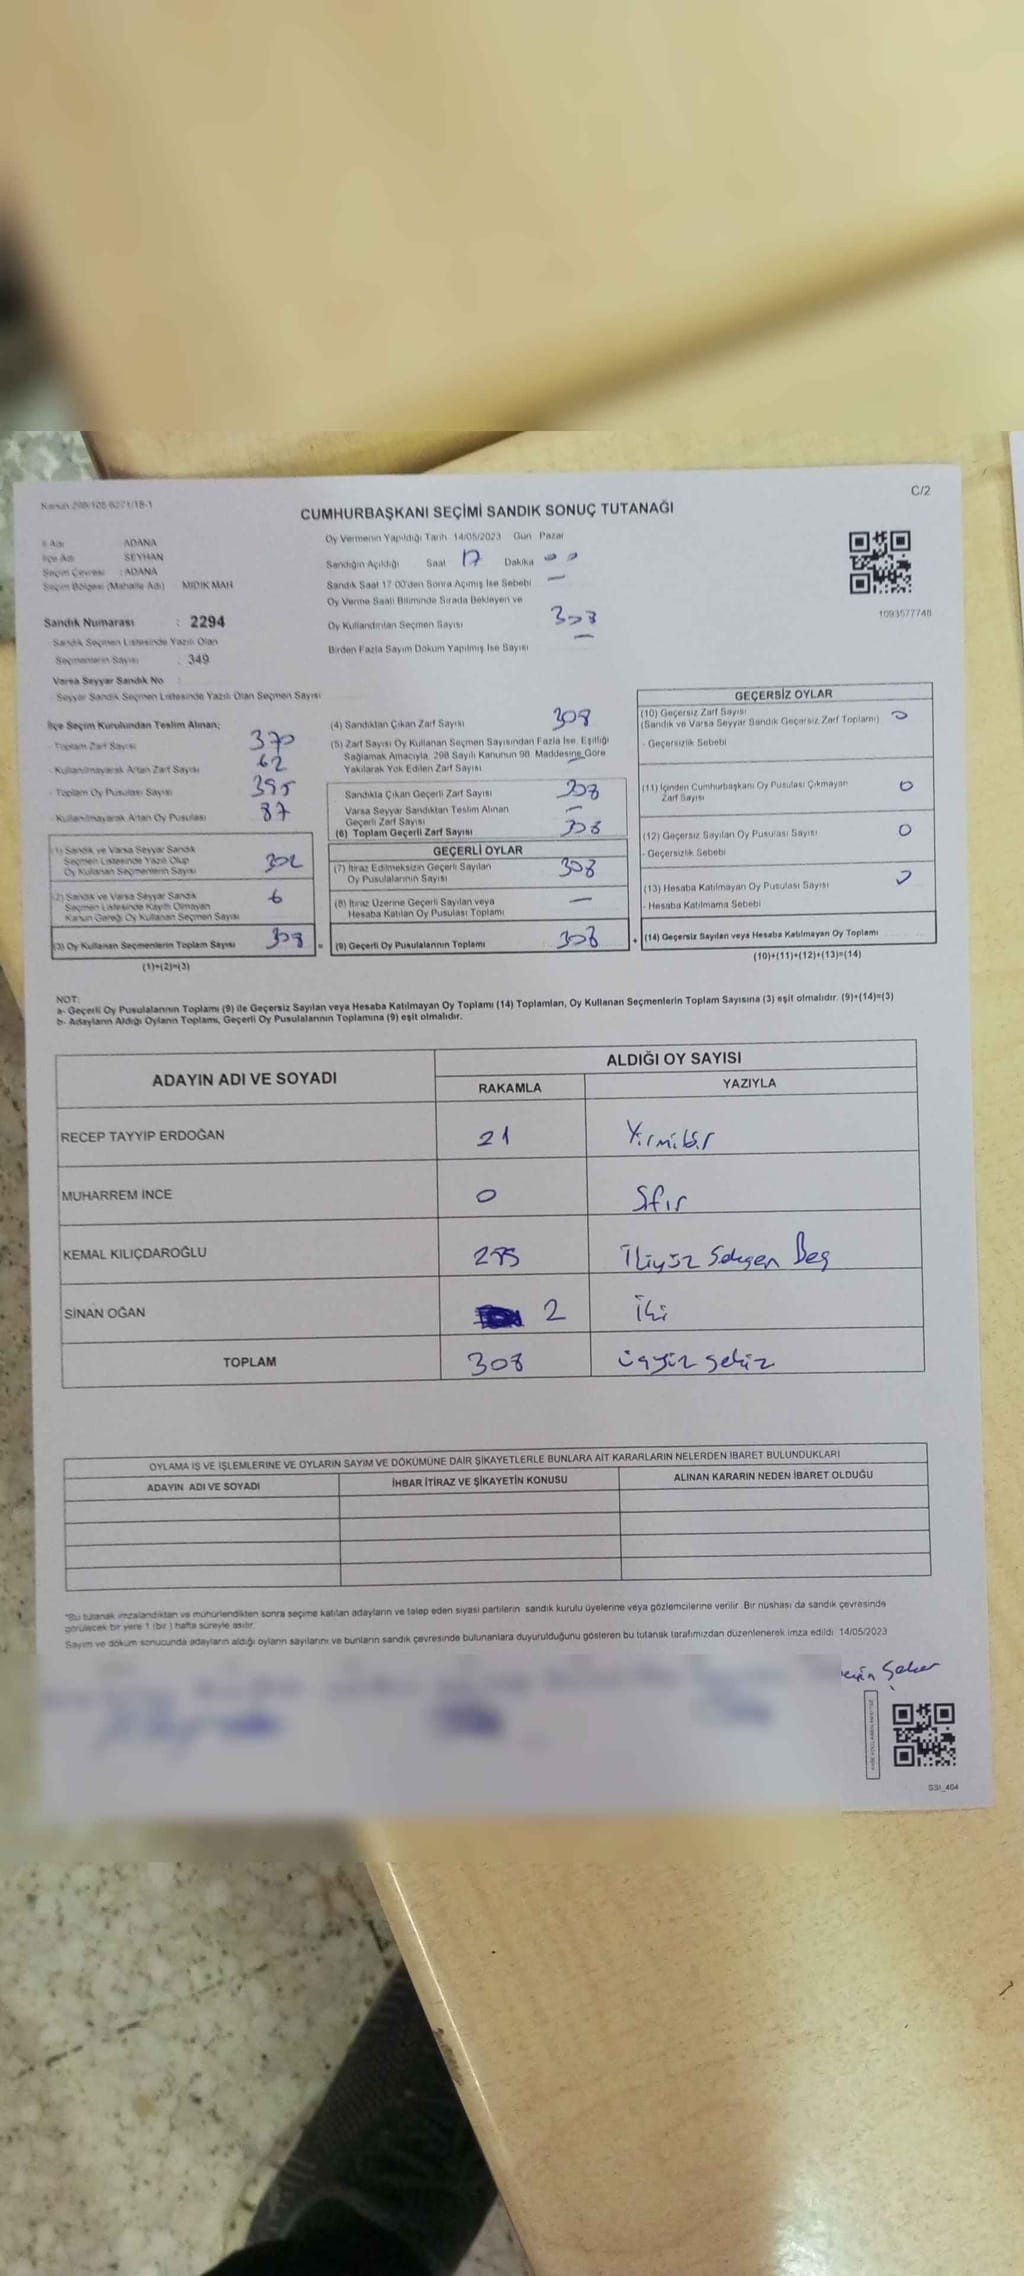 Kanun 298/105-6271/18-1
C/2
CUMHURBAŞKANI SEÇİMİ SANDIK SONUÇ TUTANAĞI
İl Adı : ADANA
İlçe Adı : SEYHAN
Seçim Çevresi : ADANA
Seçim Bölgesi (Mahalle Adı) MIDIK MAH
Sandık Numarası : 2294
Sandık Seçmen Listesinde Yazılı Olan
Seçmenlerin Sayısı : 349
Varsa Seyyar Sandık No
Seyyar Sandık Seçmen Listesinde Yazılı Olan Seçmen Sayısı
Oy Vermenin Yapıldığı Tarih 14/05/2023 Gün Pazar
Sandığın Açıldığı Saat 17 Dakika 00
Sandık Saat 17.00'den Sonra Açmış İse Sebebi —
Oy Verme Saati Bitiminde Sırada Bekleyen ve
Oy Kullandırılan Seçmen Sayısı 308
Birden Fazla Sayım Döküm Yapılmış İse Sayısı —
1093577748
İlçe Seçim Kurulundan Teslim Alınan;
- Toplam Zarf Sayısı 370
- Kullanılmayarak Artan Zarf Sayısı 62
- Toplam Oy Pusulası Sayısı 395
- Kullanılmayarak Artan Oy Pusulası 87
(1) Sandık ve Varsa Seyyar Sandık
Seçmen Listesinde Yazılı Olup
Oy Kullanan Seçmenlerin Sayısı 302
(2) Sandık ve Varsa Seyyar Sandık
Seçmen Listesinde Kayıtlı Olmayan
Kanun Gereği Oy Kullanan Seçmen Sayısı 6
(3) Oy Kullanan Seçmenlerin Toplam Sayısı 308 =
(1)+(2)=(3)
(4) Sandıktan Çıkan Zarf Sayısı 308
(5) Zarf Sayısı Oy Kullanan Seçmen Sayısından Fazla İse, Eşitliği
Sağlamak Amacıyla, 298 Sayılı Kanunun 98. Maddesine Göre
Yakılarak Yok Edilen Zarf Sayısı —
Sandıkta Çıkan Geçerli Zarf Sayısı 308
Varsa Seyyar Sandıktan Teslim Alınan
Geçerli Zarf Sayısı —
(6) Toplam Geçerli Zarf Sayısı 308
GEÇERLİ OYLAR
(7) İtiraz Edilmeksizin Geçerli Sayılan
Oy Pusulalarının Sayısı 308
(8) İtiraz Üzerine Geçerli Sayılan veya
Hesaba Katılan Oy Pusulası Toplamı —
(9) Geçerli Oy Pusulalarının Toplamı 308 +
GEÇERSİZ OYLAR
(10) Geçersiz Zarf Sayısı
(Sandık ve Varsa Seyyar Sandık Geçersiz Zarf Toplamı) 0
- Geçersizlik Sebebi
(11) İçinden Cumhurbaşkanı Oy Pusulası Çıkmayan
Zarf Sayısı 0
(12) Geçersiz Sayılan Oy Pusulası Sayısı 0
- Geçersizlik Sebebi
(13) Hesaba Katılmayan Oy Pusulası Sayısı 0
- Hesaba Katılmama Sebebi
(14) Geçersiz Sayılan veya Hesaba Katılmayan Oy Toplamı
(10)+(11)+(12)+(13)=(14)
NOT:
a- Geçerli Oy Pusulalarının Toplamı (9) ile Geçersiz Sayılan veya Hesaba Katılmayan Oy Toplamı (14) Toplamları, Oy Kullanan Seçmenlerin Toplam Sayısına (3) eşit olmalıdır. (9)+(14)=(3)
b- Adayların Aldığı Oyların Toplamı, Geçerli Oy Pusulalarının Toplamına (9) eşit olmalıdır.
ADAYIN ADI VE SOYADI ALDIĞI OY SAYISI
RAKAMLA YAZIYLA
RECEP TAYYİP ERDOĞAN 21 Yirmibir
MUHARREM İNCE 0 Sıfır
KEMAL KILIÇDAROĞLU 285 İkiyüz Seksen Beş
SİNAN OĞAN 2 İki
TOPLAM 308 üçyüz sekiz
OYLAMA İŞ VE İŞLEMLERİNE VE OYLARIN SAYIM VE DÖKÜMÜNE DAİR ŞİKAYETLERLE BUNLARA AİT KARARLARIN NELERDEN İBARET BULUNDUKLARI
ADAYIN ADI VE SOYADI İHBAR İTİRAZ VE ŞİKAYETİN KONUSU ALINAN KARARIN NEDEN İBARET OLDUĞU
"Bu tutanak imzalandıktan ve mühürlendikten sonra seçime katılan adayların ve talep eden siyasi partilerin sandık kurulu üyelerine veya gözlemcilerine verilir. Bir nüshası da sandık çevresinde
görülecek bir yere 1 (bir) hafta süreyle asılır.
Sayım ve döküm sonucunda adayların aldığı oyların sayılarını ve bunların sandık çevresinde bulunanlara duyurulduğunu gösteren bu tutanak tarafımızdan düzenlenerek imza edildi. 14/05/2023
SSI_464